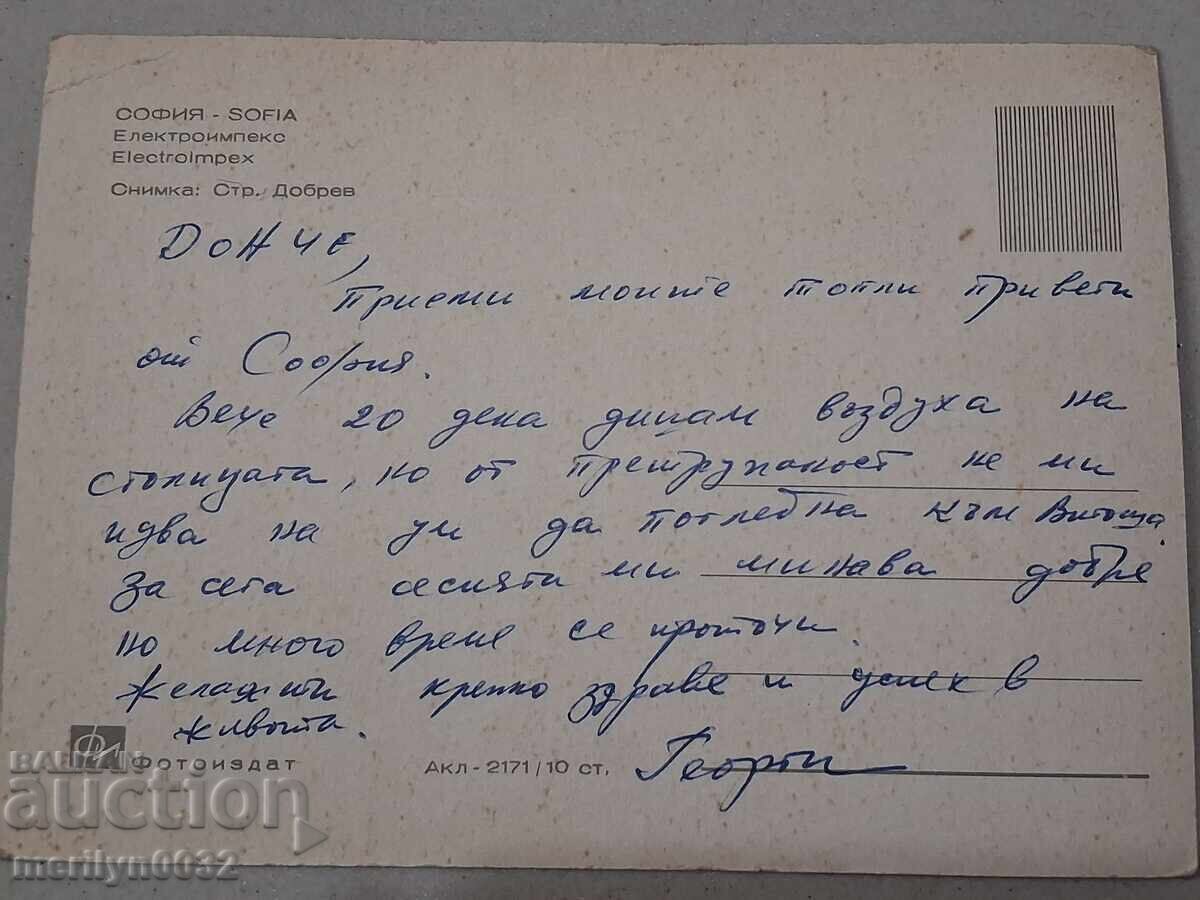 СОФИЯ - SOFIA
Електроимпекс
ElectroImpex
Снимка: Стр. Добрев
ДОНЧЕ,
Приеми моите топли привети
от София.
Вече 20 дена дишам въздуха на
столицата, но от претрупаност не ми
идва на ум да погледна към Витоша.
За сега сесията ми минава добре
но много време се проточи.
Желая ти крепко здраве и успех в
живота.
Георги
Фотоиздат
Акл-2171/10 ст.
BALKAN
auction
merilyn0032